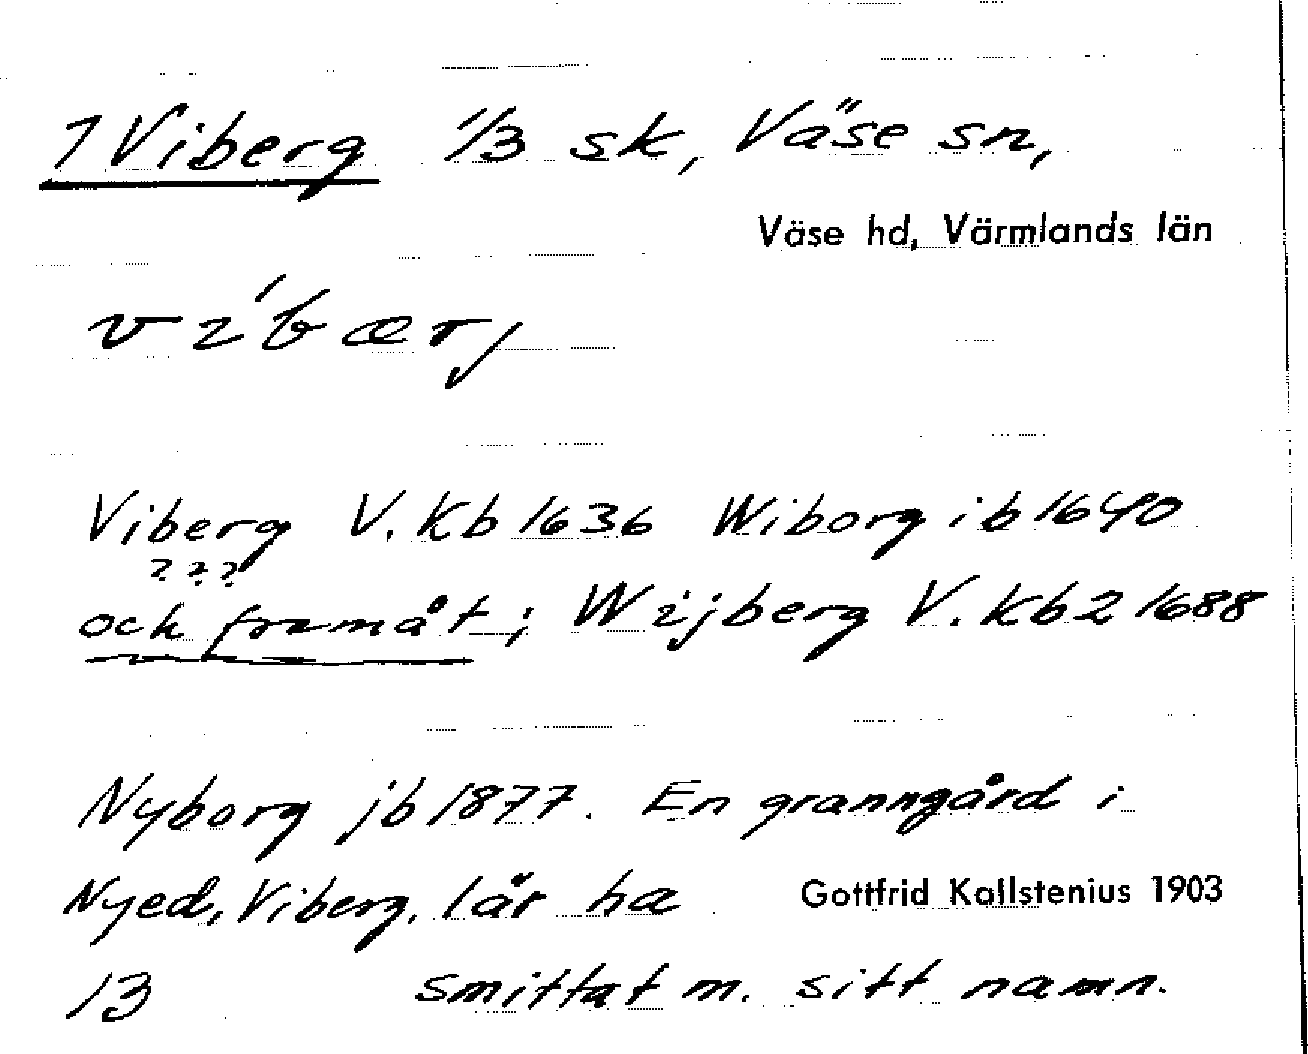 1 Viberg 1/3 sk, Väse sn,
Väse hd, Värmlands län
vi´bærj
Viberg V. Kb 1636 Wiborg ib 1640
? ? ?
och framåt; Wijberg V. Kb 2 1688
Nyborg jb 1877. En granngård i
Nyed, Viberg, lär ha
Gottfrid Kallstenius 1903
13 smittat m. sitt namn.